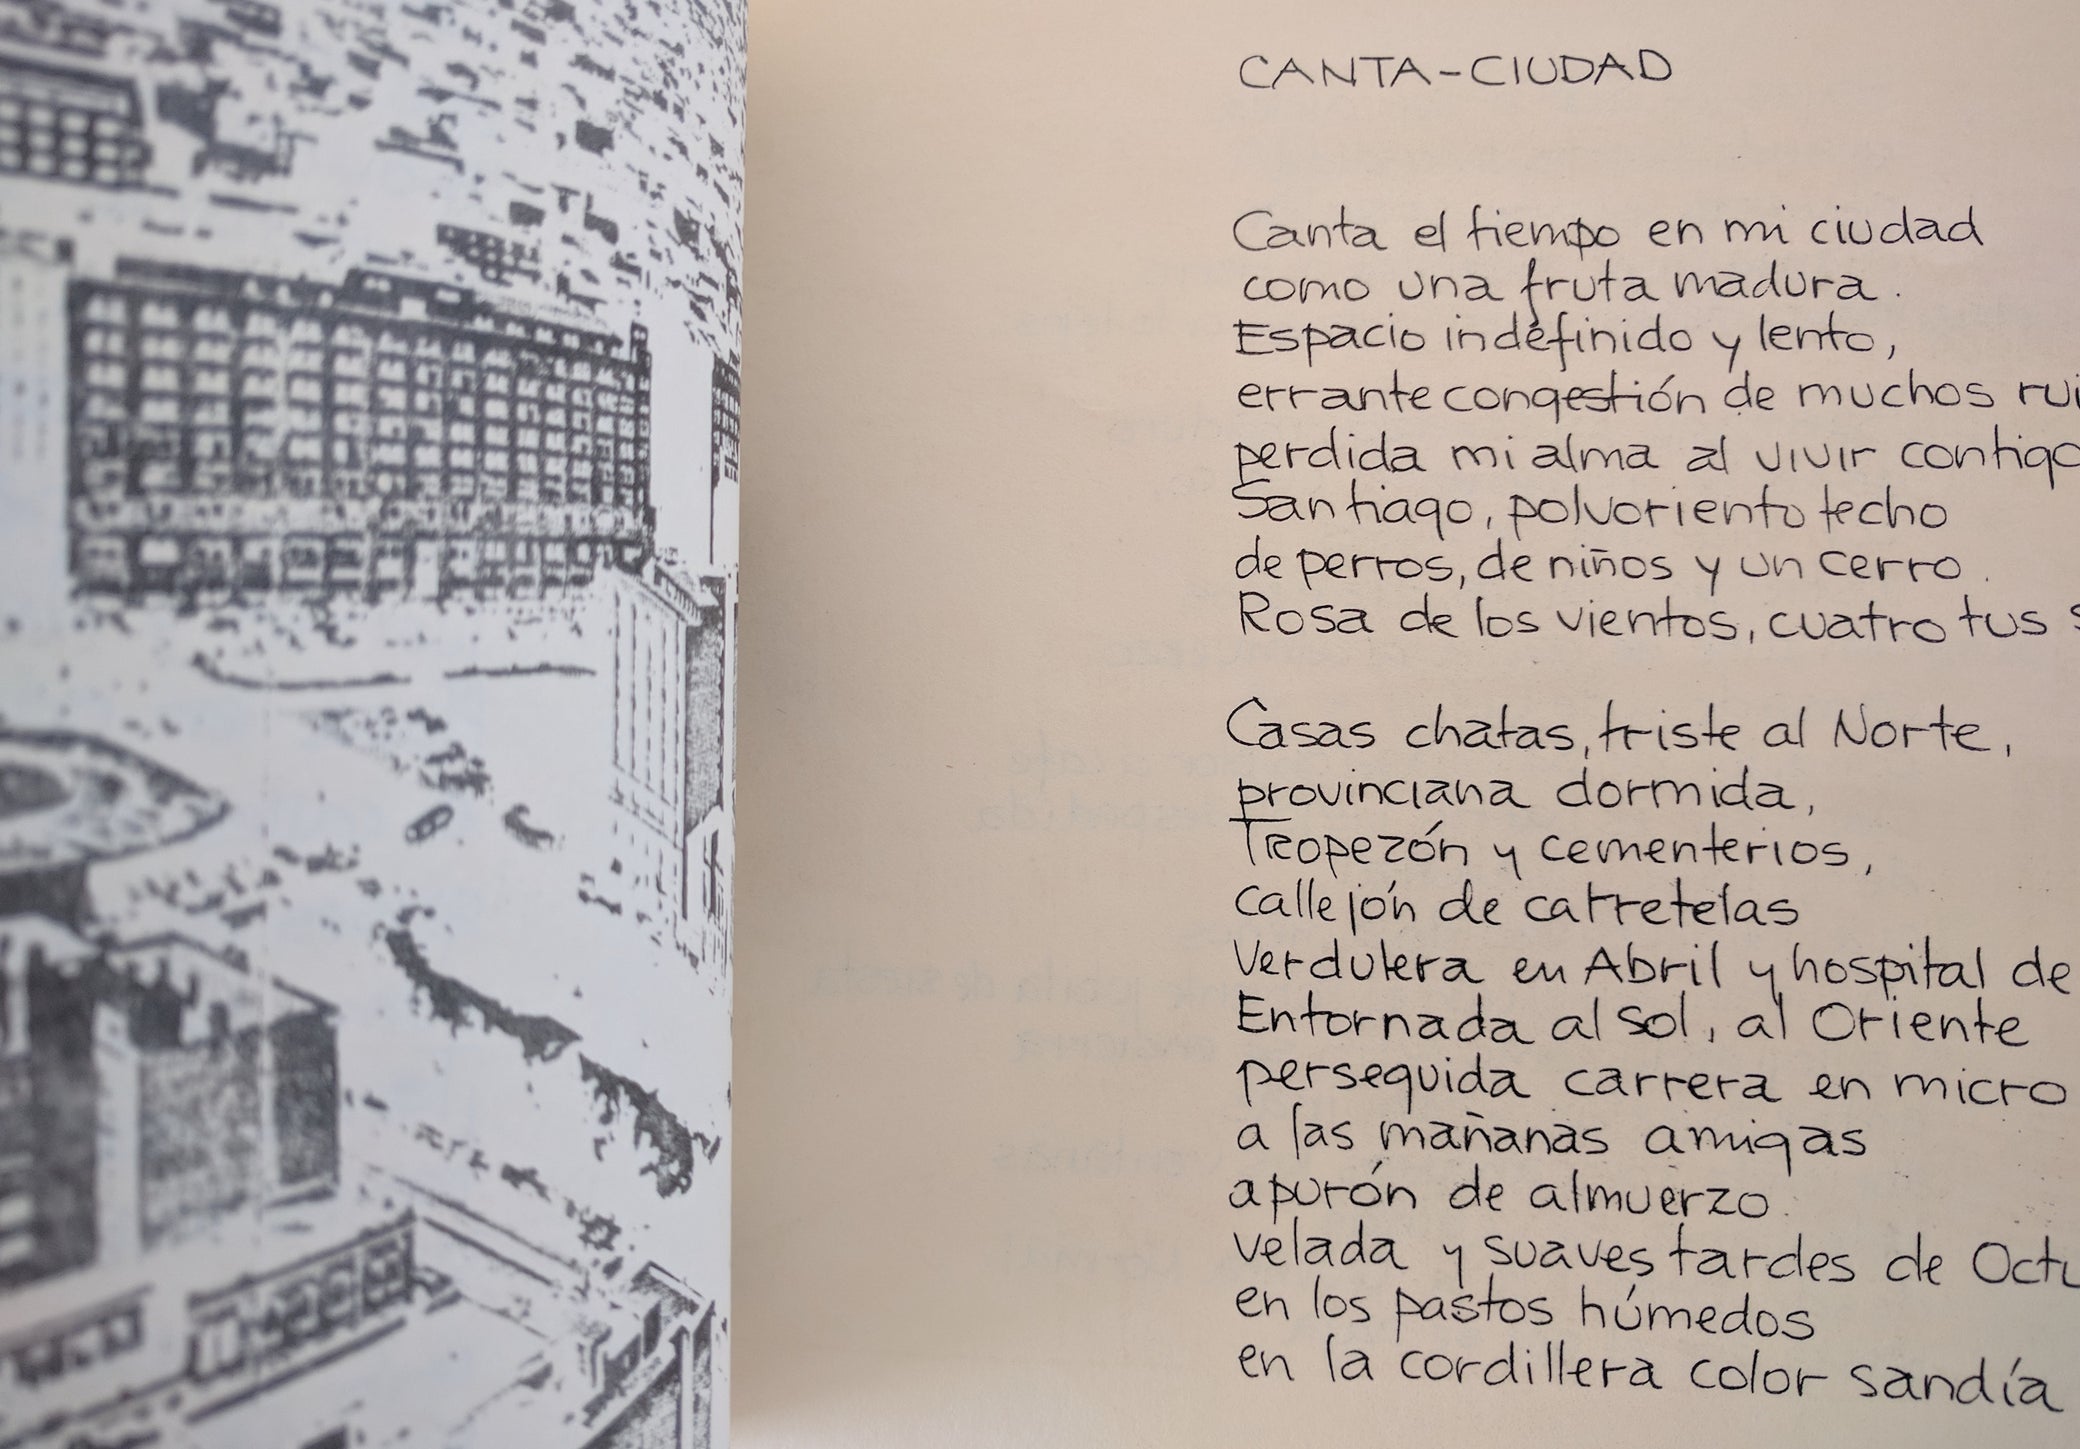 CANTA-CIUDAD
Canta el tiempo en mi ciudad
como una fruta madura.
Espacio indefinido y lento,
errante congestión de muchos rui
perdida mi alma al vivir contigo
Santiago, polvoriento techo
de perros, de niños y un cerro.
Rosa de los vientos, cuatro tus s
Casas chatas, triste al Norte,
provinciana dormida,
Tropezón y cementerios,
callejón de carretelas
verdulera en Abril y hospital de
Entornada al sol, al Oriente
perseguida carrera en micro
a las mañanas amigas
apurón de almuerzo.
velada y suaves tardes de Octu
en los pastos húmedos
en la cordillera color sandía